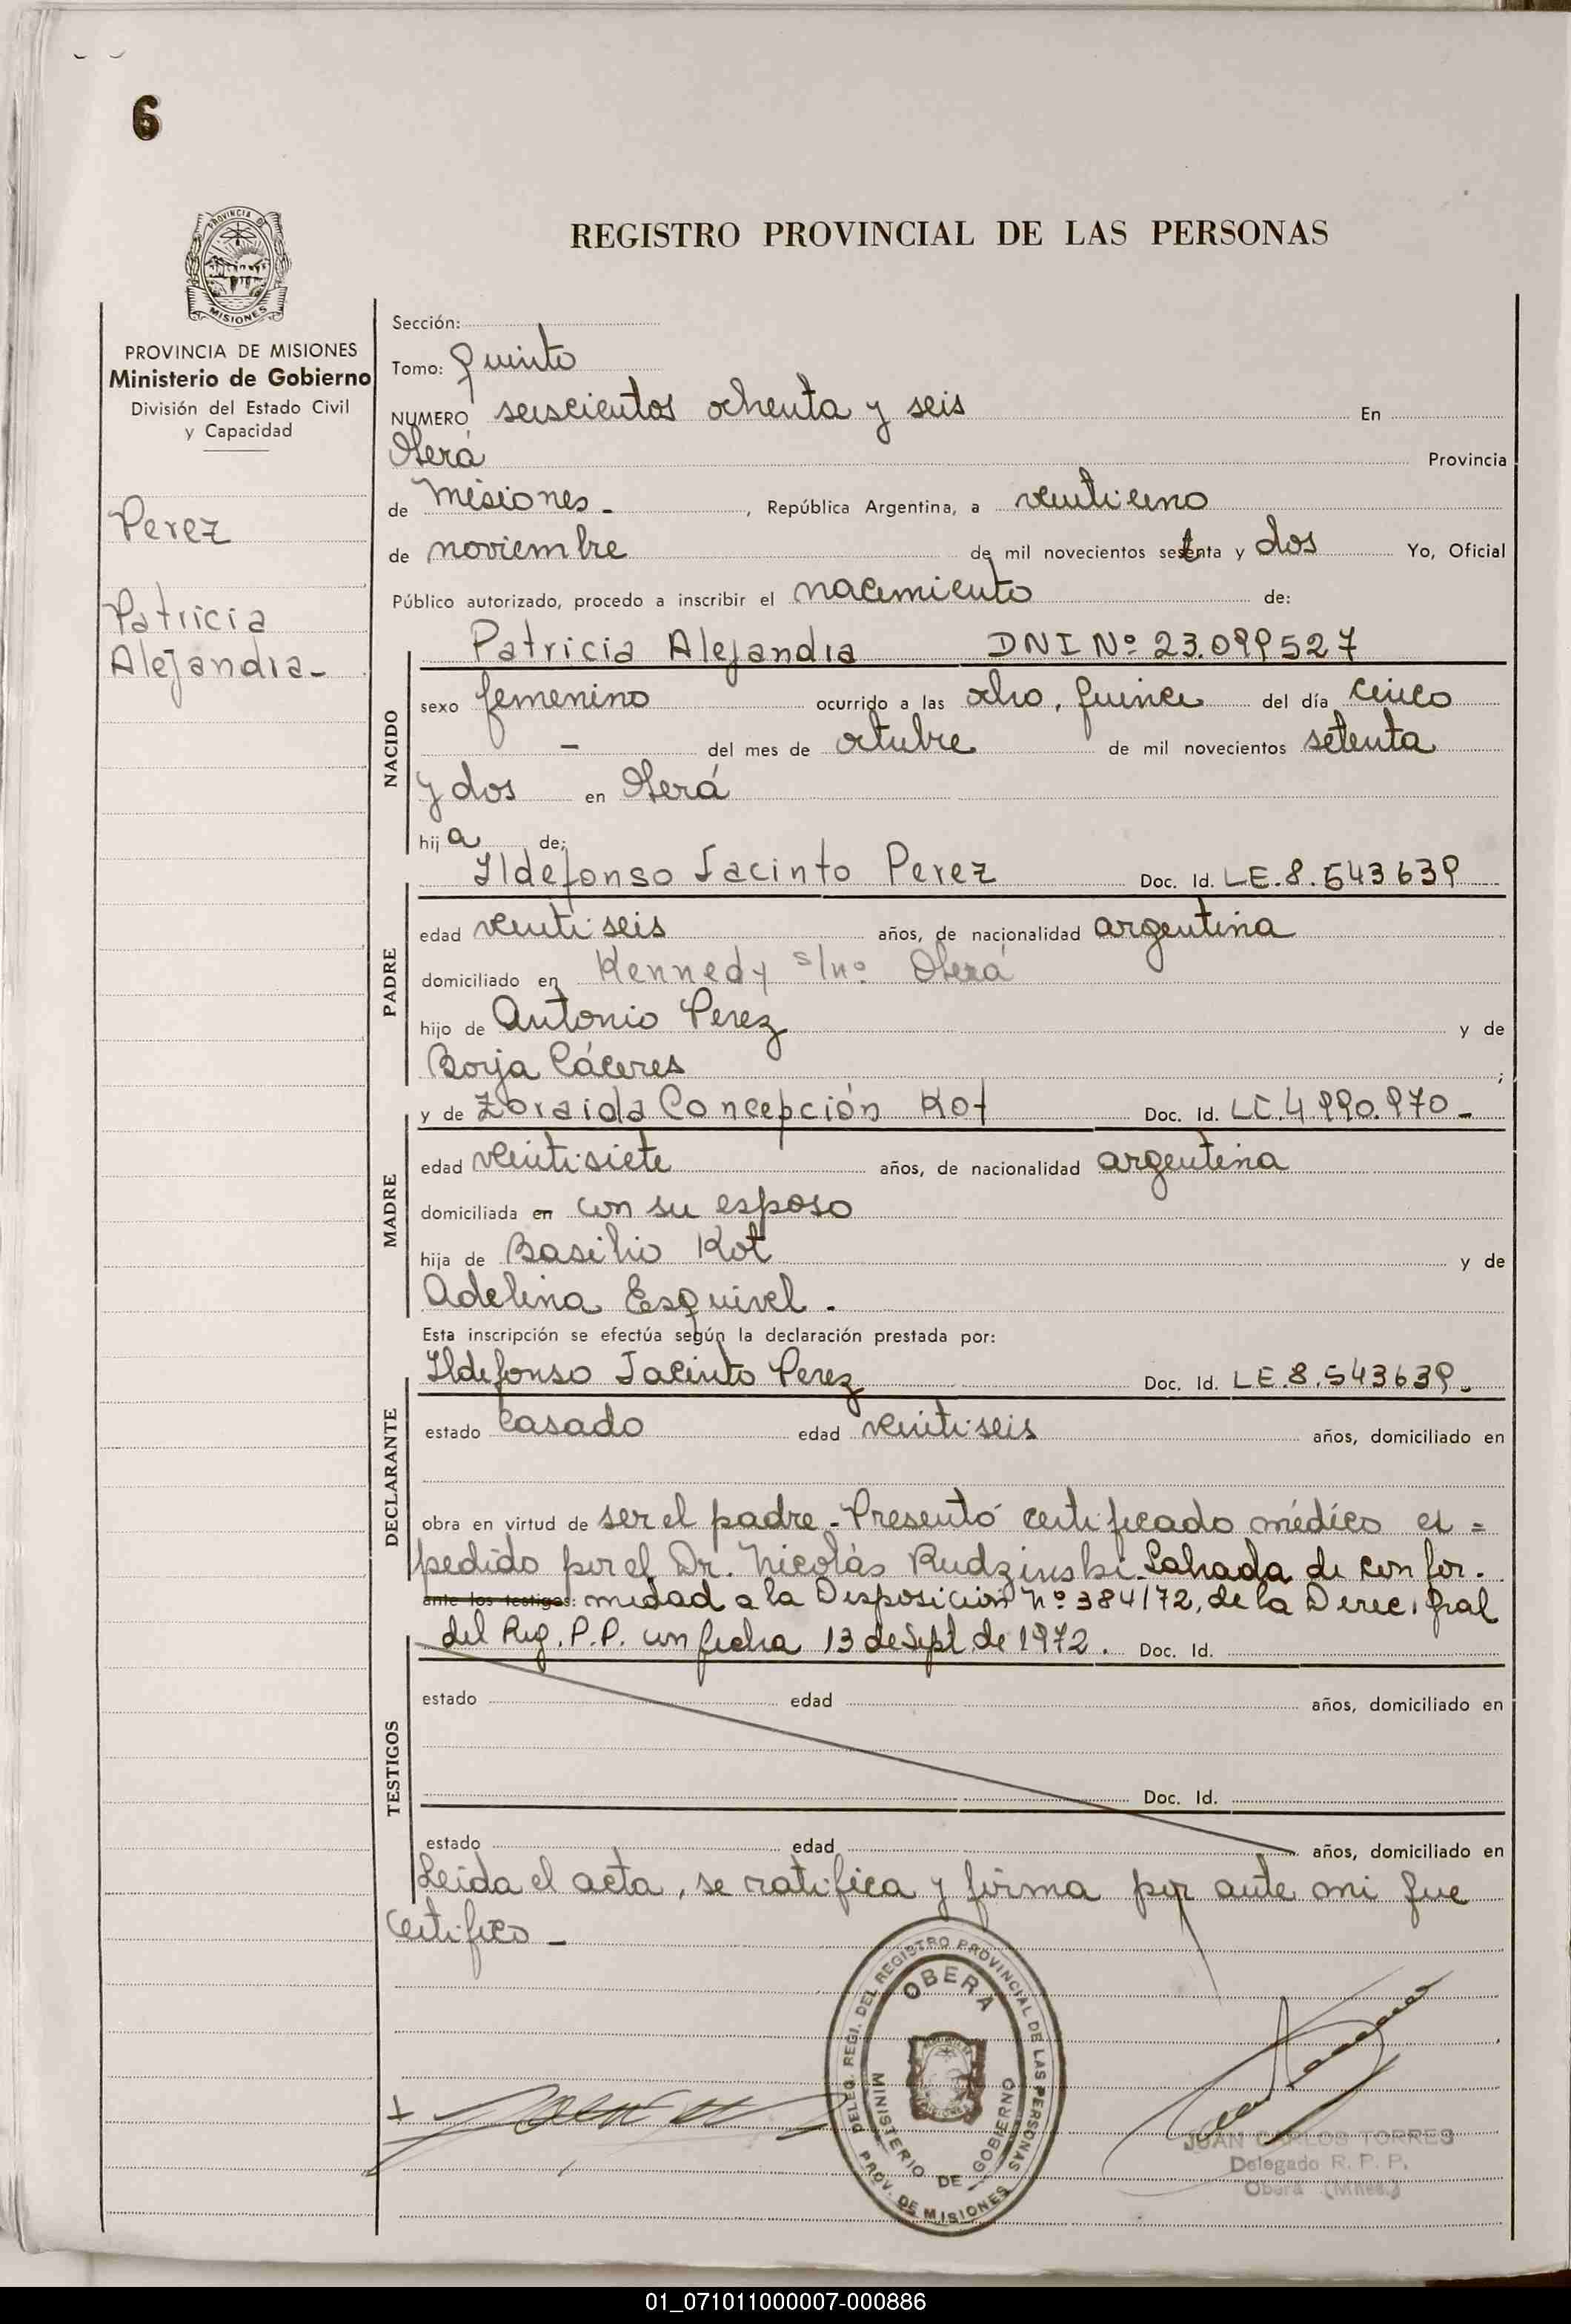 6
PROVINCIA DE MISIONES
REGISTRO PROVINCIAL DE LAS PERSONAS
PROVINCIA DE MISIONES
Ministerio de Gobierno
División del Estado Civil
y Capacidad
Perez
Patricia
Alejandra-
Sección:
Tomo: quinto
NUMERO seiscientos ochenta y seis En
Oberá Provincia
de Misiones - , República Argentina, a veintiuno
de noviembre de mil novecientos setenta y dos Yo, Oficial
Público autorizado, procedo a inscribir el nacimiento de:
NACIDO
Patricia Alejandra DNI Nº 23.099527
sexo femenino ocurrido a las ocho, quince del día cinco
- del mes de octubre de mil novecientos setenta
y dos en Oberá
hija de:
PADRE
Ildefonso Jacinto Perez Doc. Id. LE.8.543639
edad veintiseis años, de nacionalidad argentina
domiciliado en Kennedy s/nº Oberá
hijo de Antonio Perez y de
Borja Cáceres ;
MADRE
y de Zoraida Concepción Kot Doc. Id. LC.4990.970-
edad veintisiete años, de nacionalidad argentina
domiciliada en con su esposo
hija de Basilio Kot y de
Adelina Esquivel.
Esta inscripción se efectúa según la declaración prestada por:
DECLARANTE
Ildefonso Jacinto Perez Doc. Id. LE.8.543639.
estado casado edad veintiseis años, domiciliado en
obra en virtud de ser el padre - Presentó certificado médico ex=
pedido por el Dr. Nicolás Rudzinski. Labrada de confor-
ante los testigos: midad a la Disposición Nº 384/72, de la Direc. Gral
del Reg. P.P. con fecha 13 de Sept. de 1972. Doc. Id.
TESTIGOS
estado edad años, domiciliado en
Doc. Id.
estado edad años, domiciliado en
Leida el acta, se ratifica y firma por ante mi que
certifico -
DELEG. REGI. DEL REGISTRO PROVINCIAL DE LAS PERSONAS
OBERA
MINISTERIO DE GOBIERNO
PROV. DE MISIONES
JUAN CARLOS TORRES
Delegado R. P. P.
Oberá (Mnes.)
01_071011000007-000886